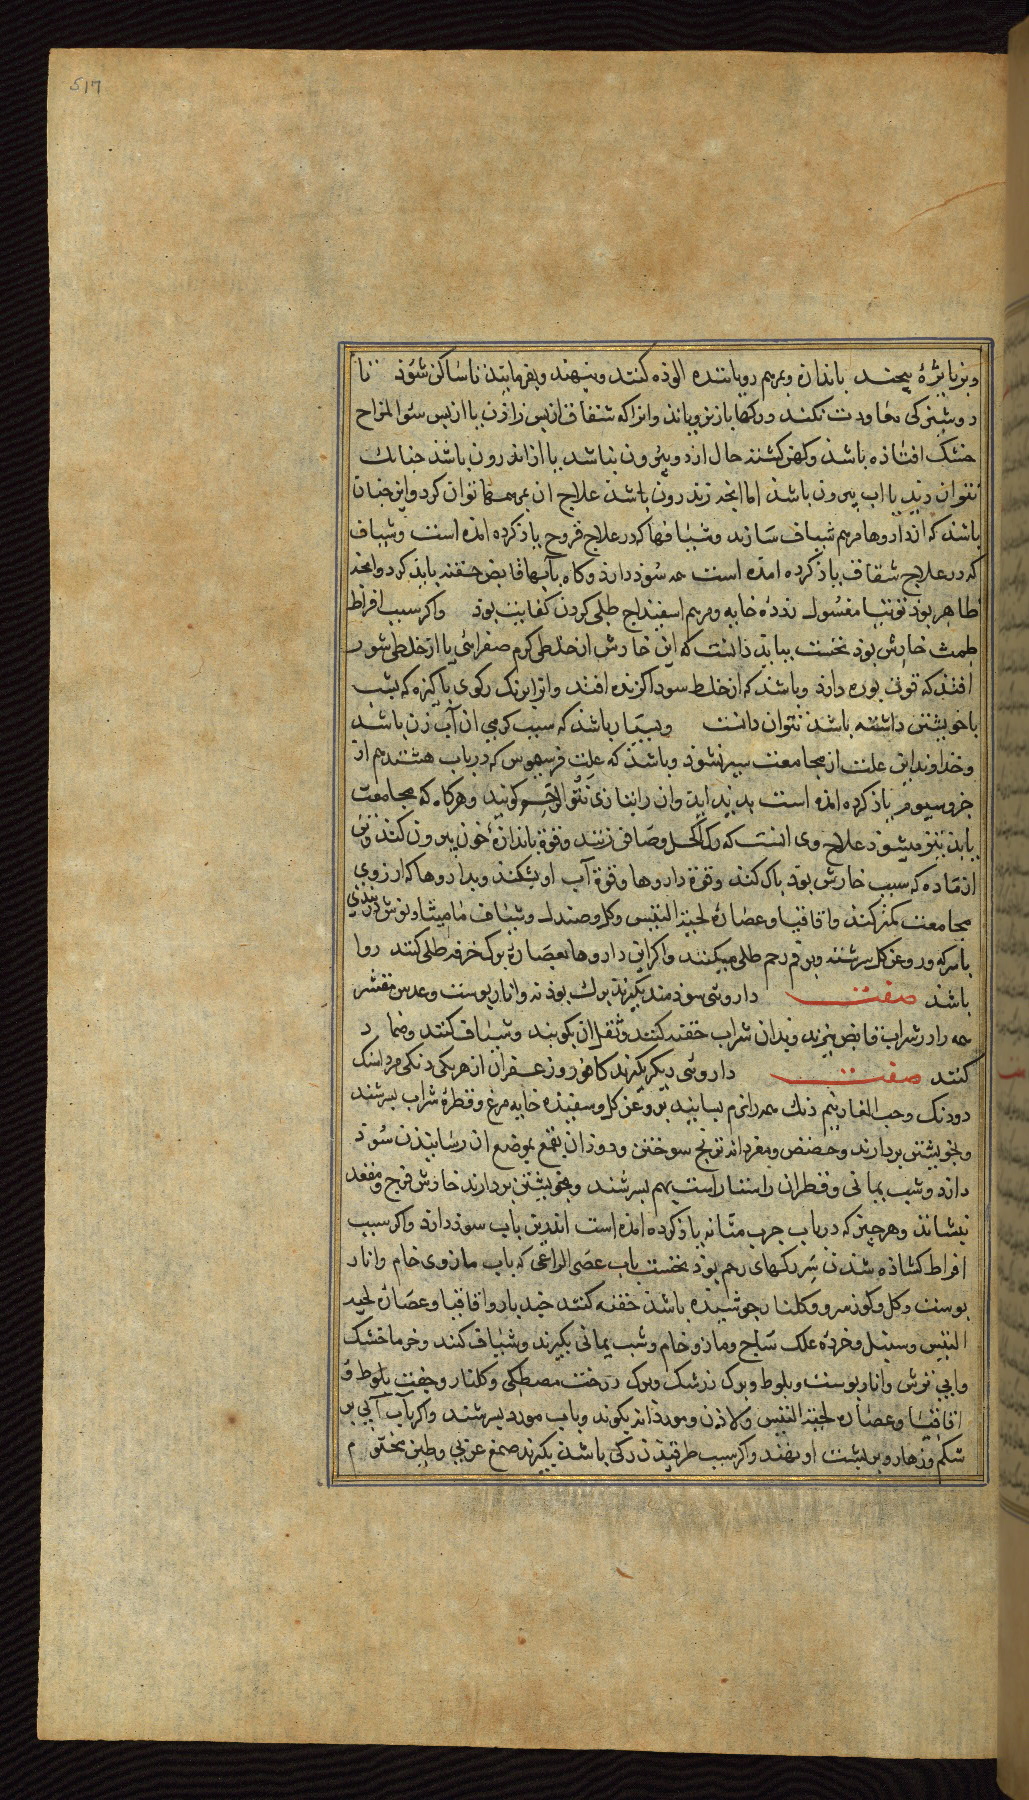 517
باندازه وبمرهم رویاننده الوده کنند وبنهند وبفرمایند تا ساکن شوذ تا
دوشیزکی معاودت نکند ورکها باز نرویاند وانرا که شقاق از پس زاذن یا از پس سوء المزاج
خشک افتاذه باشد وکهن کشته حال از دو بیرون نباشد یا از اندرون باشد چنانک
نتوان دید یا از بیرون باشد اما انچه زاندرون باشد علاج ان بمرهمها توان کرد واین چنان
باشد که ازداروها مرهم شیاف سازند وشیافها که در علاج قروح یاذ کرده امده است وشیاف
که در علاج شقاق یاذ کرده امده است همه سوذ دارذ وکاه بابها قابض حقنه بایذ کرد وانچه
ظاهر بوذ توتیا مغسول زرده خایه ومرهم اسفیداج طلی کردن کفایت بوذ واکر سبب افراط
طمث خارش بوذ نخست بباید دانست که این خارش از خلطی کرم صفرائی یا از خلطی شور
افتذ که قوت بوره دارذ وباشد که از خلط سوداء کزنده افتد وانرا برنک رکوی پاکیزه که بشب
با خویشتن داشته باشذ بتوان دانست وبسیار باشذ که سبب کرمی ان آب زن باشد
وخداوند این علت از مجامعت سیر نشوذ وباشذ که علت فریسموس که در باب هشتدهم از
جزو سیوم یاذ کرده امده است بدید اید وان را بتازی نتوّ الرحم کویند وهرکاه که مجامعت
یابذ بتر میشوذ علاج وی انست که رک اکحل وصافن زنند وقوة باندازهٔ خون بیرون کنند وتن
ازماده که سبب خارش بوذ پاک کنند وقوة داروها وقوة آب او بشکند وبداروها که ارزوی
مجامعت کمتر کند واقاقیا وعصارهٔ لحیة التیس وکل وصندل وشیاف مامیثا وبوش دربندی
با سرکه وروغن کل سرشته وبر فم رحم طلی میکنند واکر این داروها بعصارهٔ برک خرفه طلی کنند روا
باشذ صفت داروئی سوذمند بکیرند برک بوذنه وانار پوست وعدس مقشر
همه را در شراب قابض بپزند وبدان شراب حقنه کنند وثفل ان بکوبند وشیاف کنند وضماد
کنند صفت داروئی دیکر بکیرند کافور وزعفران از هر یکی دنکی مرداسنک
دودنک وحب الغار نیم دنک همه را نرم بسایند بروغن کل وسفیده خایه مرغ وقطرهٔ شراب بسرشند
وبخویشتن بردارند وحضض ومغز دانه ترنج سوختن ودوذ ان بقمع بموضع ان رسانیدن سوذ
دارد وشب یمانی وقطران راستا راست بهم بسرشند وبخویشتن بردارند خارش فرج ومقعد
بنشاند وهر چیز که در باب جرب مثانه یاذ کرده امده است اندرین باب سوذ دارذ واکر سبب
افراط کشاذه شدن سر رکهای رحم بوذ نخست باب عصی الراعی که باب مازوی خام وانار
پوست وکل وکوزمرو وکلنار جوشیده باشذ حقنه کنند چند بار واقاقیا وعصارهٔ لحیة
التیس وسنبل وخرده علک ومازو خام وشب یمانی بکیرند وشیاف کنند وخرما خشک
وابی ترش وانار پوست وبلوط وبرک زرشک وبرک درخت مصطکی وکلنار وجفت بلوط و
اقاقیا وعصاره لحیة التیس ولاذن وموردانه بکوبند وباب مورد بسرشند واکر باب آبی بر
شکم وزهار وبر پشت او نهند واکر سبب طرقیدن رکی باشد بکیرند صمغ عربی وطین مختوم